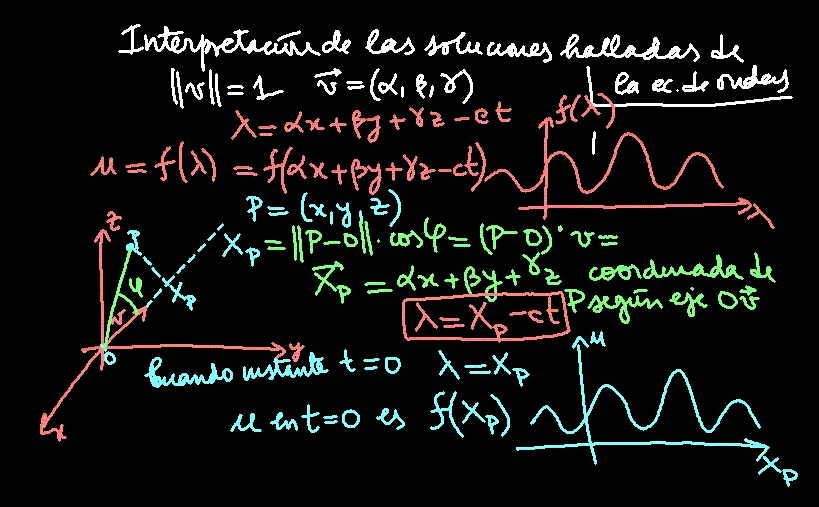 Interpretación de las soluciones halladas de
la ec. de ondas
‖v‖ = 1 v⃗ = (α, β, γ)
λ = αx + βy + γz - ct
f(λ)
u = f(λ) = f(αx + βy + γz - ct)
λ
P = (x, y, z)
z
P
X_P = ‖P-O‖ · cos φ = (P-O) · v =
φ
X_P
v
X⃗_P = αx + βy + γz coordinada de
P según eje Ov⃗
λ = X_P - ct
O
y
x
Cuando instante t = 0 λ = X_P
u
u en t = 0 es f(X_P)
X_P